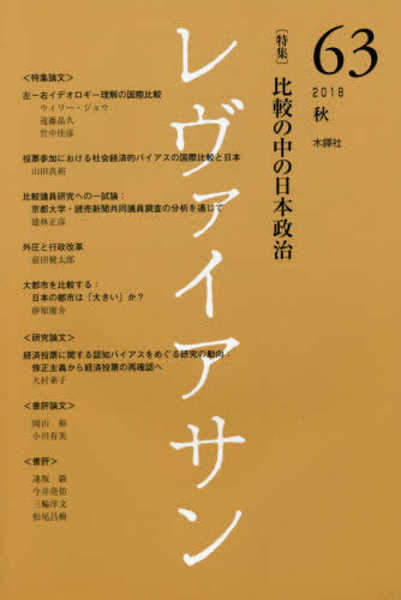 63
2018
秋
木鐸社
〔特集〕
比較の中の日本政治
レヴァイアサン
＜特集論文＞
左－右イデオロギー理解の国際比較
ウィリー・ジョウ
遠藤晶久
竹中佳彦
投票参加における社会経済的バイアスの国際比較と日本
山田真裕
比較議員研究への一試論：
京都大学・読売新聞共同議員調査の分析を通じて
建林正彦
外圧と行政改革
前田健太郎
大都市を比較する：
日本の都市は「大きい」か？
砂原庸介
＜研究論文＞
経済投票に関する認知バイアスをめぐる研究の動向：
修正主義から経済投票の再確認へ
大村華子
＜書評論文＞
岡山　裕
小川有美
＜書評＞
逢坂　巌
今井亮佑
三輪洋文
松尾昌樹